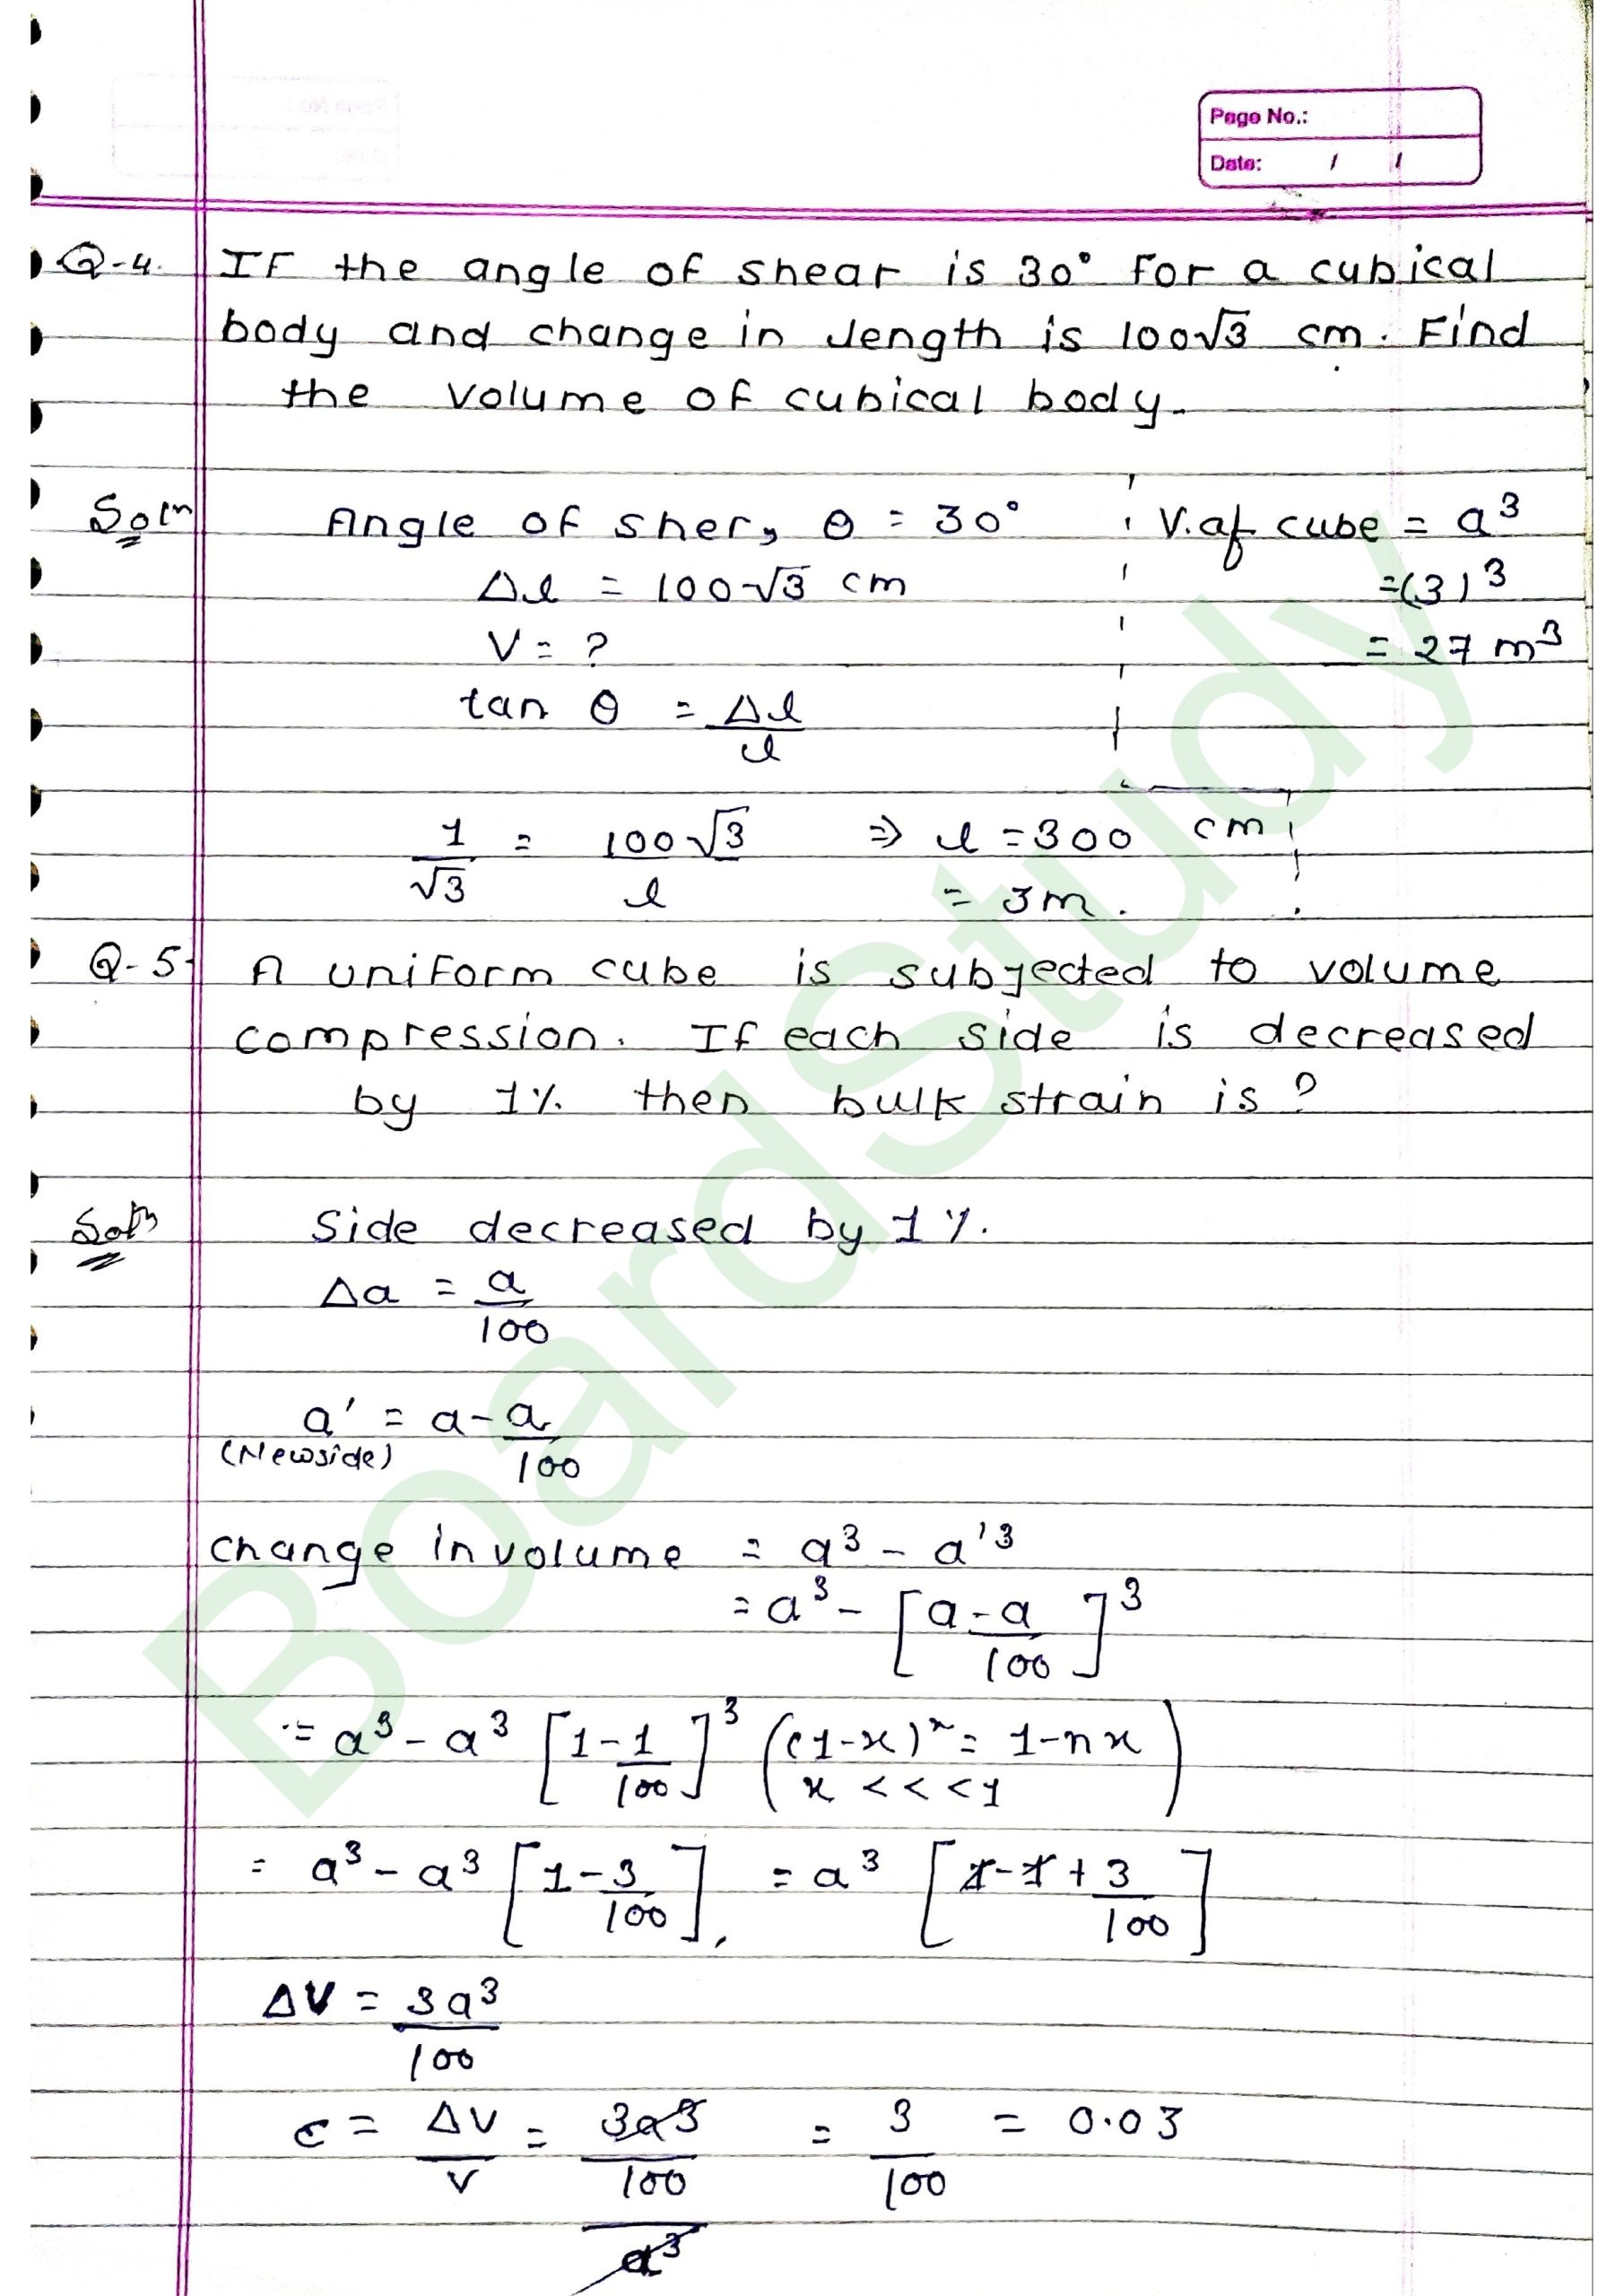 Page No.:
Date: / /
Q-4. IF the angle of shear is 30° for a cubical
body and change in length is 100√3 cm. Find
the volume of cubical body.
Soln Angle of sher, θ = 30°
Δl = 100√3 cm
V = ?
tan θ = Δl/l
1/√3 = 100√3/l ⇒ l = 300 cm
= 3m.
V. of cube = a³
=(3)³
= 27 m³
Q-5 A uniform cube is subjected to volume
compression. If each side is decreased
by 1% then bulk strain is?
Soln Side decreased by 1%.
Δa = a/100
a' = a - a/100
(New side)
change in volume = a³ - a'³
= a³ - [a - a/100]³
= a³ - a³ [1 - 1/100]³ ((1-x)ⁿ = 1-nx
x <<< 1)
= a³ - a³ [1 - 3/100], = a³ [1 - 1 + 3/100]
ΔV = 3a³/100
ε = ΔV/V = 3a³/100/a³ = 3/100 = 0.03
BoardStudy